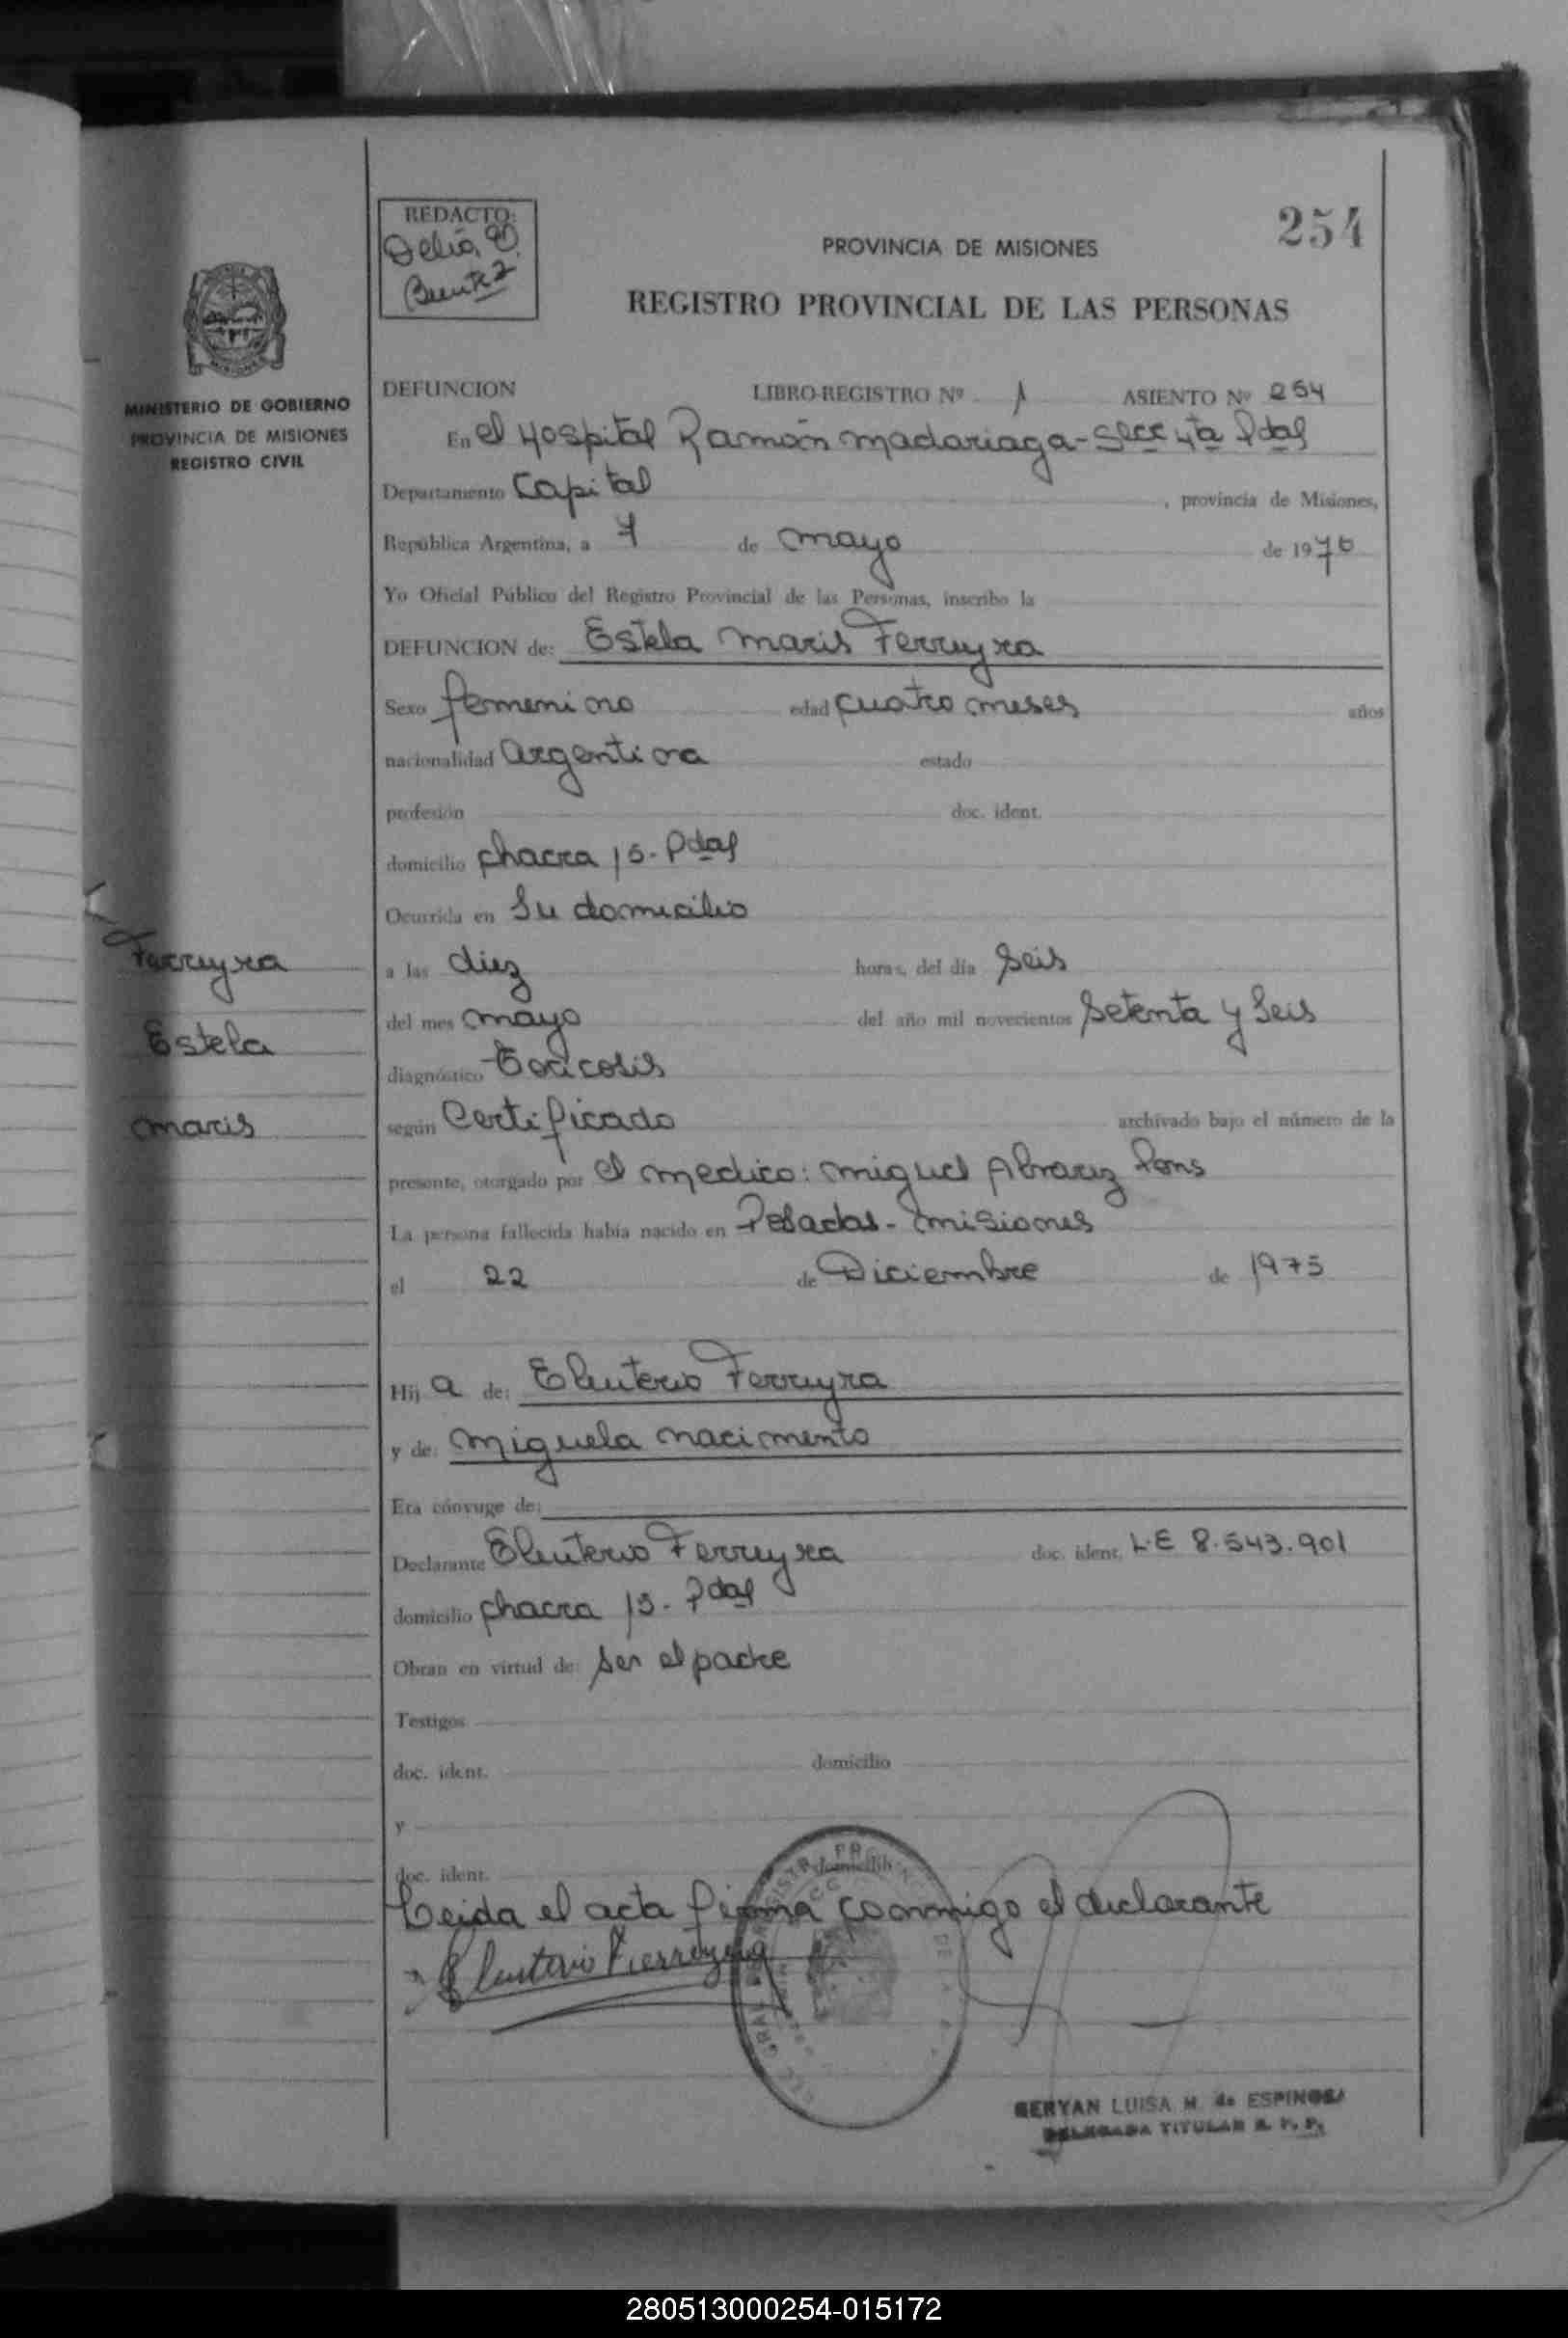 254
REDACTO:
Delia
Benitez
PROVINCIA DE MISIONES
REGISTRO PROVINCIAL DE LAS PERSONAS
MINISTERIO DE GOBIERNO
PROVINCIA DE MISIONES
REGISTRO CIVIL
DEFUNCION LIBRO-REGISTRO Nº 1 ASIENTO Nº 254
En el Hospital Ramón Madariaga - Secc 4ta Pdas
Departamento Capital , provincia de Misiones,
República Argentina, a 7 de mayo de 1976
Yo Oficial Público del Registro Provincial de las Personas, inscribo la
DEFUNCION de: Estela Maris Ferreyra
Sexo femenino edad cuatro meses años
nacionalidad Argentina estado
profesión doc. ident.
domicilio chacra 15 - Pdas
Ocurrida en Su domicilio
Ferreyra
a las diez horas, del día seis
Estela
del mes mayo del año mil novecientos Setenta y Seis
diagnóstico Toxicosis
Maris
según Certificado archivado bajo el número de la
presente, otorgado por el medico: Miguel Alvarez Pons
La persona fallecida había nacido en Posadas - Misiones
el 22 de Diciembre de 1975
Hij a de: Eleuterio Ferreyra
y de: Miguela nacimento
Era cónyuge de:
Declarante Eleuterio Ferreyra doc. ident. L.E 8.543.901
domicilio chacra 15 - Pdas
Obran en virtud de: ser el padre
Testigos
doc. ident. domicilio
y
doc. ident. domicilio
Leida el acta firma conmigo el declarante
Eleuterio Ferreyra
GERYAN LUISA M. de ESPINOSA
DELEGADA TITULAR R. P. P.
280513000254-015172